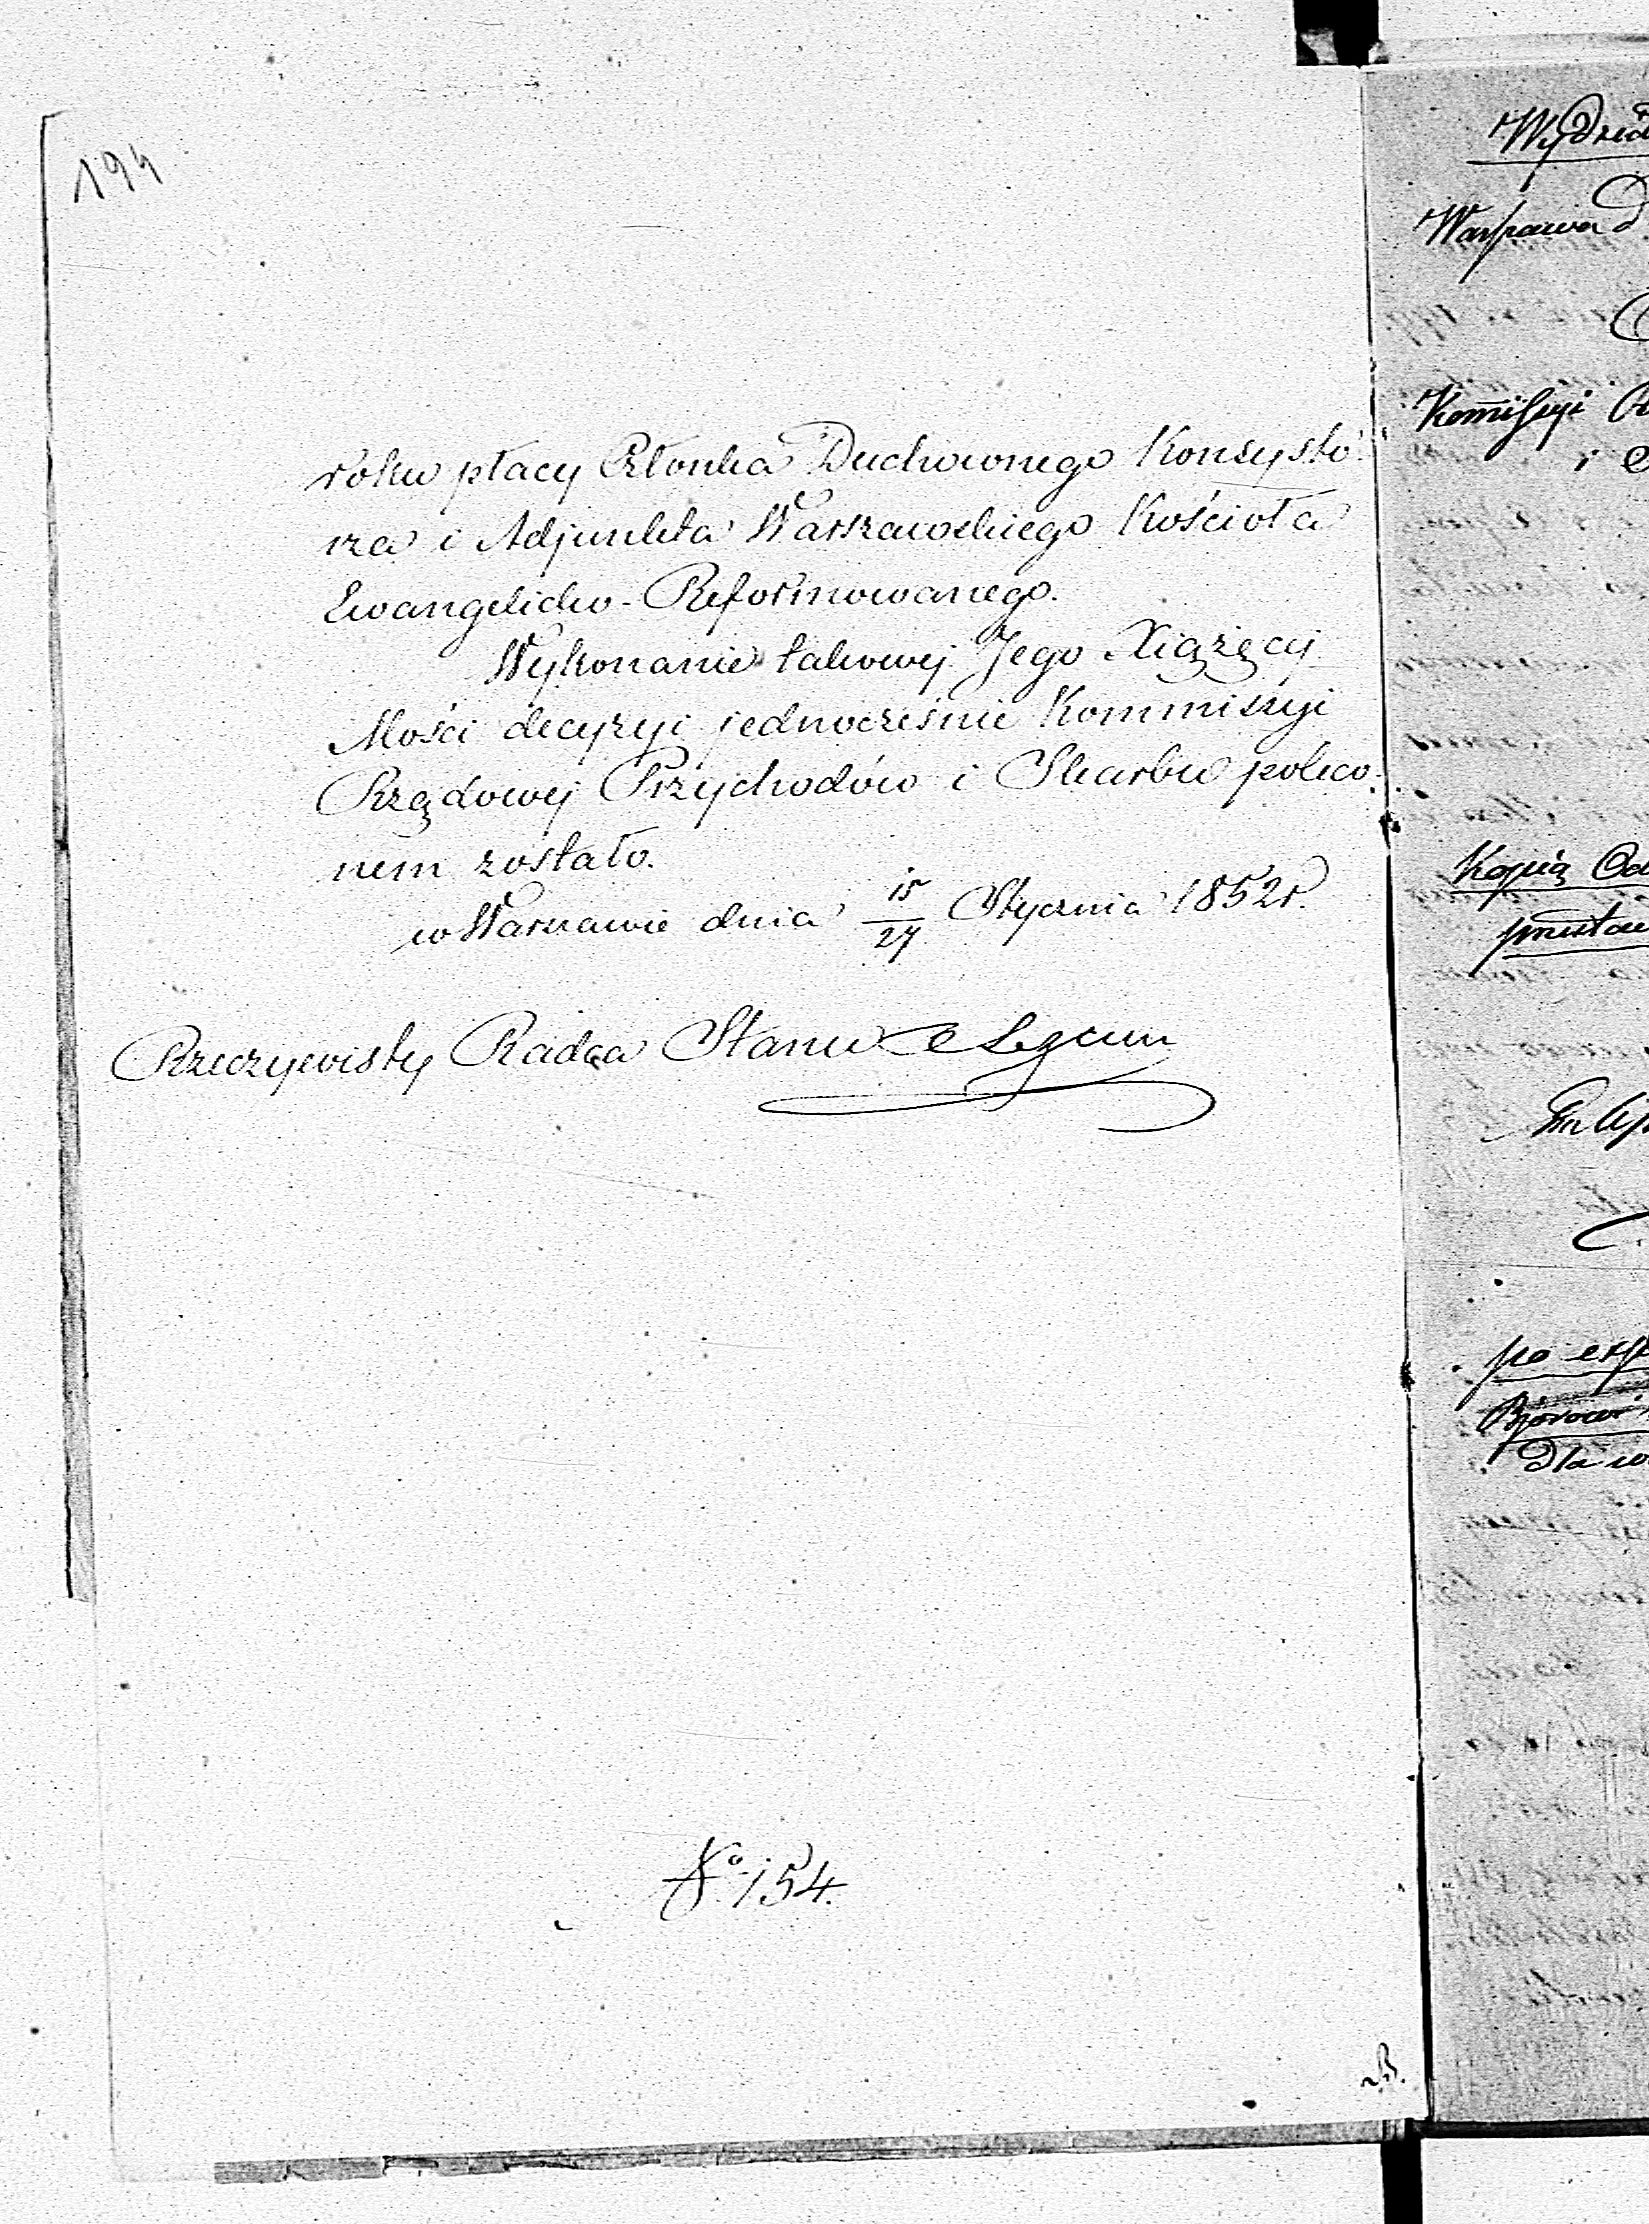 194
roku płacy Członka Duchownego Konsysto-
rza i Adjunkta Warszawskiego Kościoła
Ewangelicko-Reformowanego.
Wykonanie takowej Jego Xiążęcej
Mości decyzyi jednocześnie Kommissyi
Rządowej Przychodów i Skarbu poleco-
nem zostało.
w Warszawie dnia 15/27 Stycznia 1852 r.
Rzeczywisty Radca Stanu
No 154.
Warszawa d
Kommissyi
i
Kopią
dla